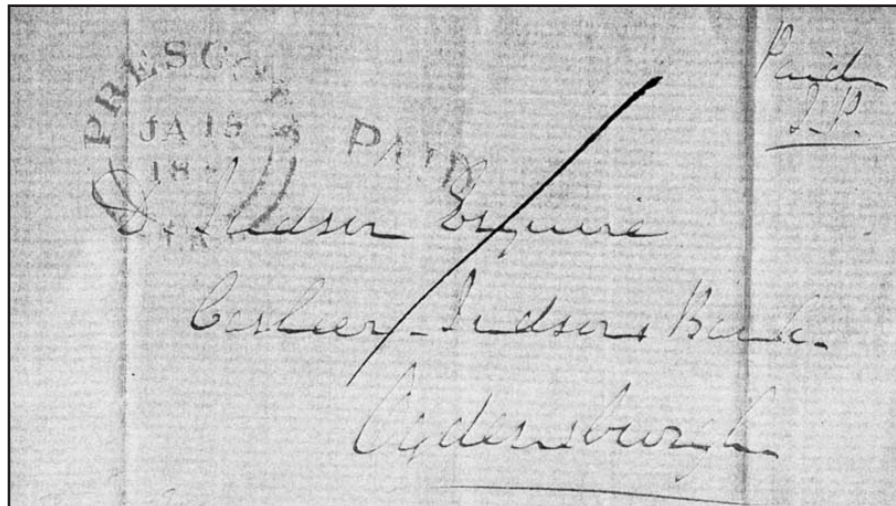 Paid
PRESCOTT
JA 15
18
PAID
D. Judson Esquire
Cashier Judsons Bank
Ogdensburgh